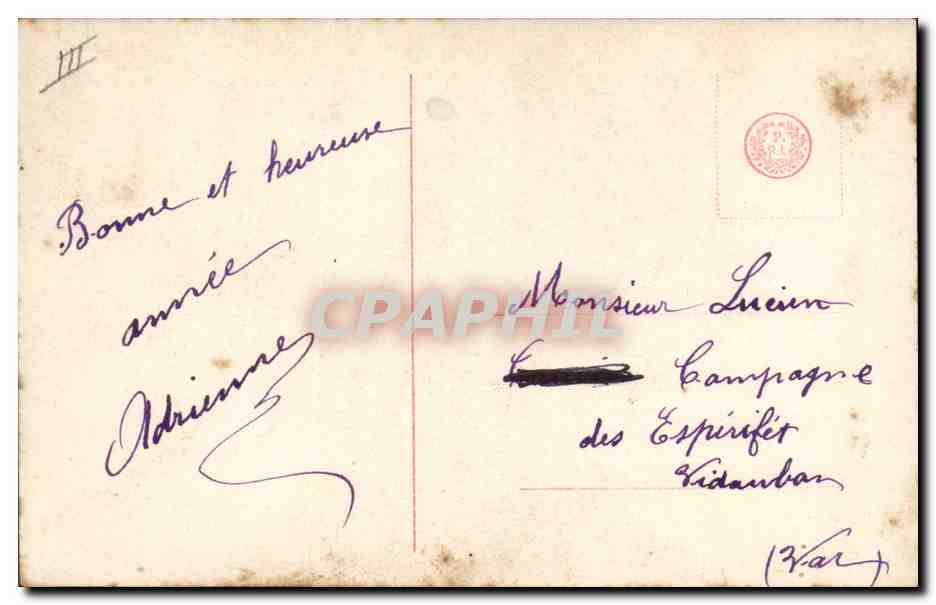 III
Bonne et heureuse
année
Adrienne
P.
R.I.
CPAPHIL
Monsieur Lucien
Campagne
des Espérifét
Vidauban
(Var)